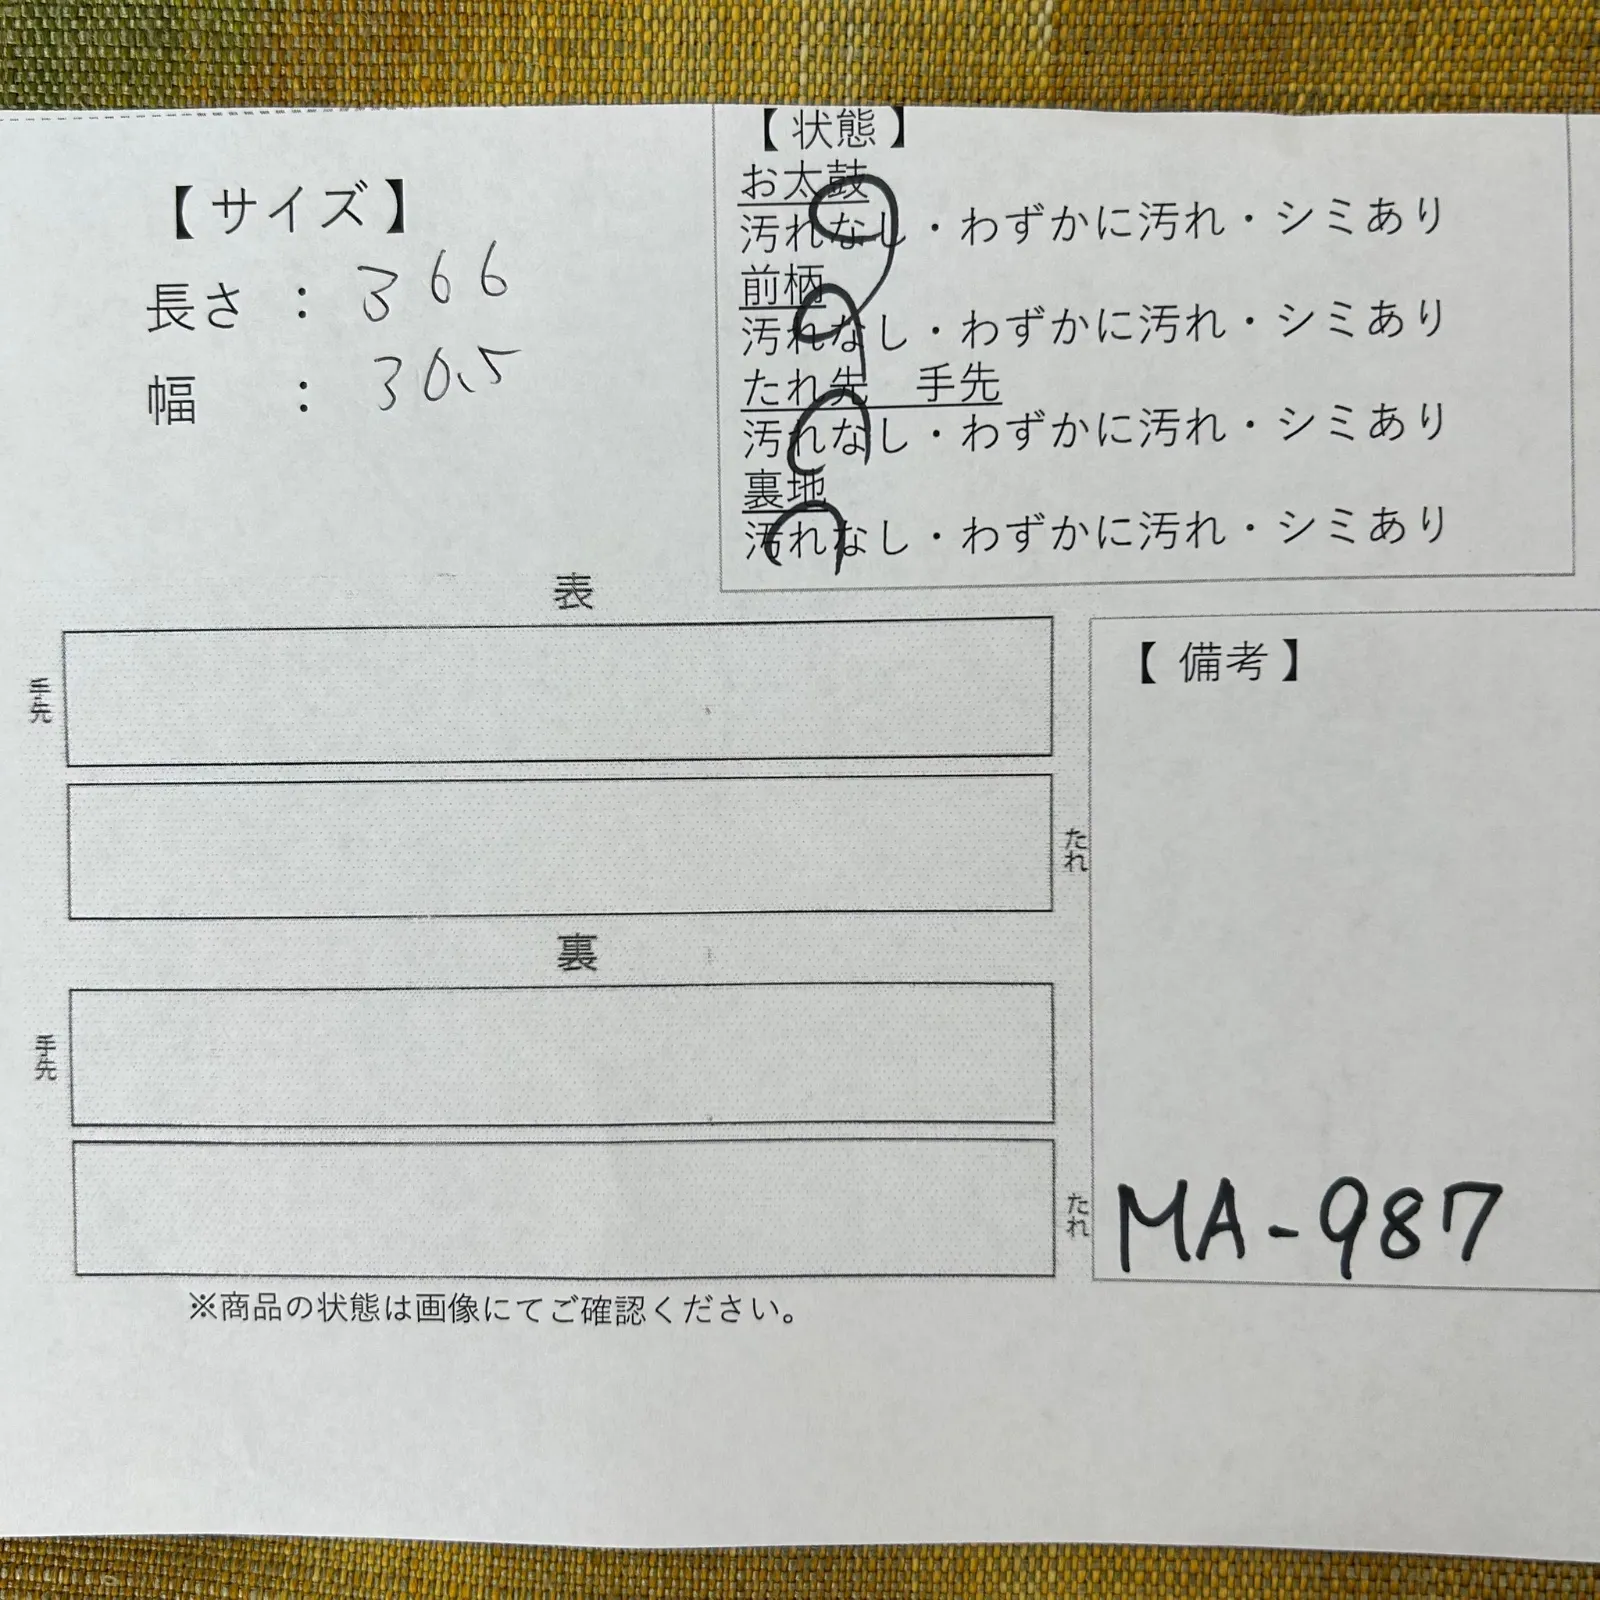 【サイズ】
長さ ： 366
幅 ： 30.5
【状態】
お太鼓
汚れなし・わずかに汚れ・シミあり
前柄
汚れなし・わずかに汚れ・シミあり
たれ先 手先
汚れなし・わずかに汚れ・シミあり
裏地
汚れなし・わずかに汚れ・シミあり
表
手先
たれ
裏
手先
たれ
【備考】
MA-987
※商品の状態は画像にてご確認ください。